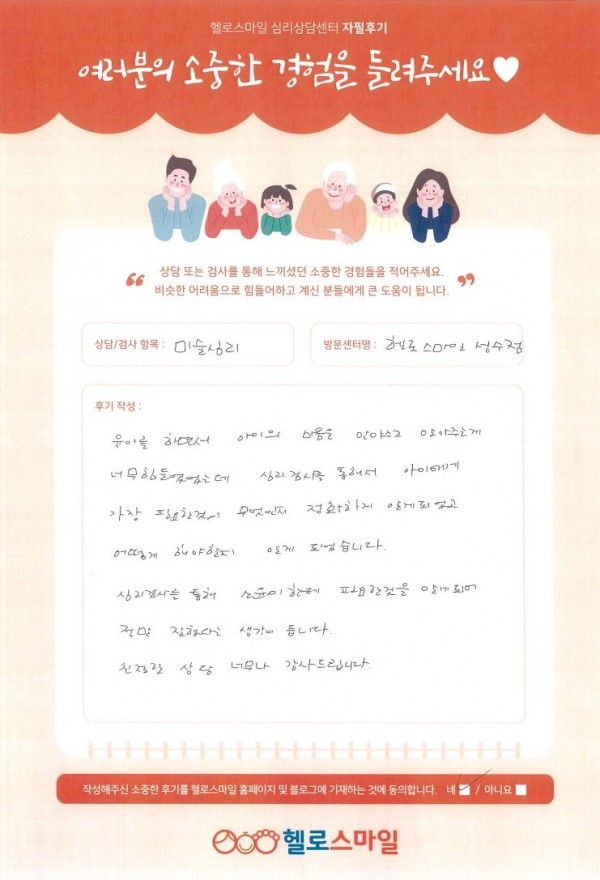 헬로스마일 심리상담센터 자필후기
여러분의 소중한 경험을 들려주세요♥
“ 상담 또는 검사를 통해 느끼셨던 소중한 경험들을 적어주세요.
비슷한 어려움으로 힘들어하고 계신 분들에게 큰 도움이 됩니다. ”
상담/검사 항목 : 미술심리
방문센터명 : 헬로스마일 성수점
후기 작성 :
육아를 하면서 아이의 마음을 알아주는게
너무 힘들었었는데 심리검사를 통해서 아이에게
가장 필요한것이 무엇인지 정확하게 알게되었고
어떻게 해야할지 알게 되었습니다.
심리검사를 통해 필요한것을 알게되어
정말 잘했다는 생각이 듭니다.
친절한 상담 너무나 감사드립니다.
작성해주신 소중한 후기를 헬로스마일 홈페이지 및 블로그에 기재하는 것에 동의합니다. 네 / 아니요
헬로스마일